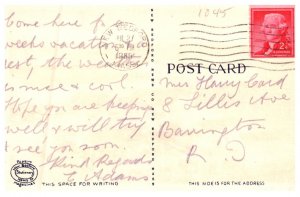 1045
Come here for
weeks vacation
rest, the weather
is nice & cool.
Hope you are keeping
well & will try
& see you soon.
Kind Regards
E. Adams
THIS SPACE FOR WRITING
POST CARD
Mrs Harry Card
8 Lillis Ave
Barrington
R. I
THIS SIDE IS FOR THE ADDRESS
2¢